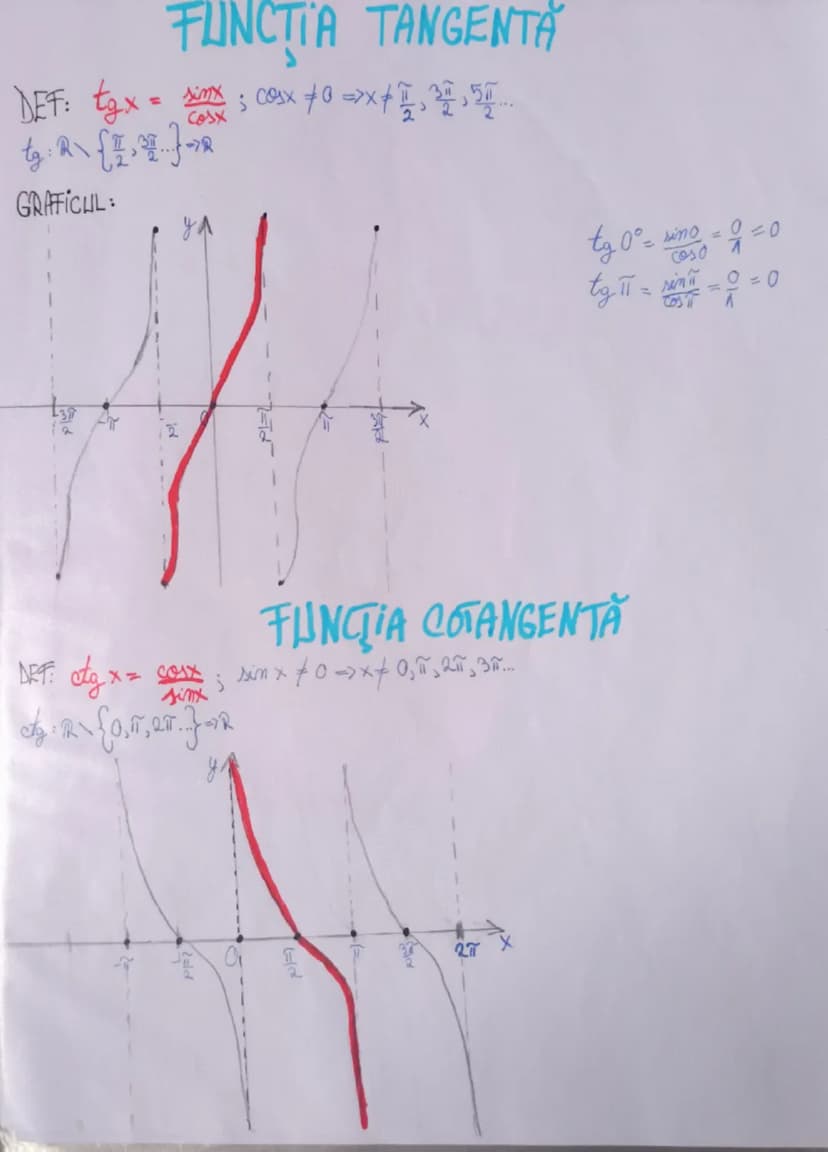 FUNCȚIA TANGENTĂ
DEF: tg x = sinx/cosx ; cosx ≠ 0 => x ≠ π/2, 3π/2, 5π/2...
tg: R \ {π/2, 3π/2...} → R
GRAFICUL:
tg 0° = sin0/cos0 = 0/1 = 0
tg π = sinπ/cosπ = 0/1 = 0
y
-3π/2 -π 2 0 π/2 π 3π/2 x
FUNCȚIA COTANGENTĂ
DEF: ctg x = cosx/sinx ; sin x ≠ 0 => x ≠ 0, π, 2π, 3π...
ctg: R \ {0, π, 2π...} → R
y
-π -π/2 0 π/2 π 3π/2 2π x